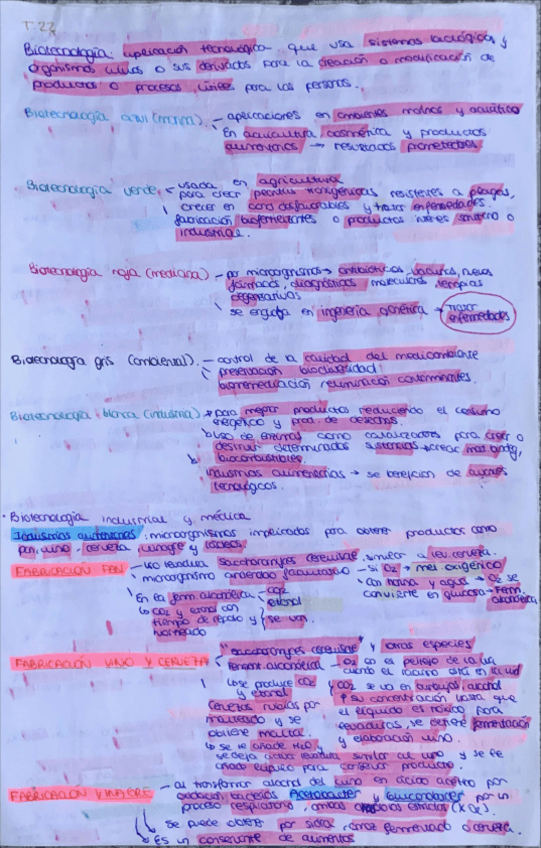 T.22
Biotecnología: aplicación tecnológica que usa sistemas biológicos y
organismos vivos o sus derivados para la creación o modificación de
productos o procesos útiles para las personas.
Biotecnología azul (marina) - aplicaciones en ambientes marinos y acuáticos
en acuicultura, cosmética y productos
alimentarios → resultados prometedores
Biotecnología verde - usada en agricultura
para crear plantas transgénicas resistentes a plagas,
crecer en cond desfavorables y tratar enfermedades.
fabricación biofertilizantes o productos interés sanitario o
industrial.
Biotecnología roja (medicina) - por microorganismos → antibióticos, vacunas, nuevos
fármacos, diagnósticos moleculares, terapias
degenerativas
se engloba en ingeniería genética → tratar
enfermedades
Biotecnología gris (ambiental) - control de la calidad del medioambiente
preservación biodiversidad
biorremediación, eliminación contaminantes.
Biotecnología blanca (industria) → para mejorar productos reduciendo el consumo
energético y prod. de desechos.
uso de enzimas como catalizadores para crear o
destruir determinadas sustancias → crear mat. biodg,
biocombustibles.
industrias alimentarias → se benefician de avances
tecnológicos.
· Biotecnología industrial y médica
Industrias alimentarias: microorganismos implicados para obtener productos como
pan, vino, cerveza, vinagre y lácteos.
FABRICACIÓN PAN - uso levadura Saccharomyces cerevisiae, similar a lev. cerveza.
microorganismo anaerobio facultativo - si O2 → met. oxigénico
con harina y agua → O2 se
convierte en glucosa → Ferm.
alcohólica
En la ferm. alcohólica - CO2
etanol
CO2 y etanol con
tiempo de reposo y se van.
horneado
FABRICACIÓN VINO Y CERVEZA - "Saccharomyces cerevisiae" y otras especies
ferment. alcohólica - en pellejo de la uva
cuando el racimo está en la vid
se produce CO2
y etanol
CO2 se va en burbujas, alcohol
↑ su concentración hasta que
el líquido es tóxico para
levaduras, se detiene fermentación
y elaboración vino.
malteado y se
obtiene malta.
se le añade H2O
se deja actuar levadura similar al vino y se le
añade lúpulo para conservar producto.
FABRICACIÓN VINAGRE - al transformar alcohol del vino en ácido acético por
Acetobacter y Gluconobacter por un
proceso respiratorio, ambas aerobias estrictas (x O2).
se puede obtener por sidra, arroz fermentado o cerveza.
Es un conservante de alimentos